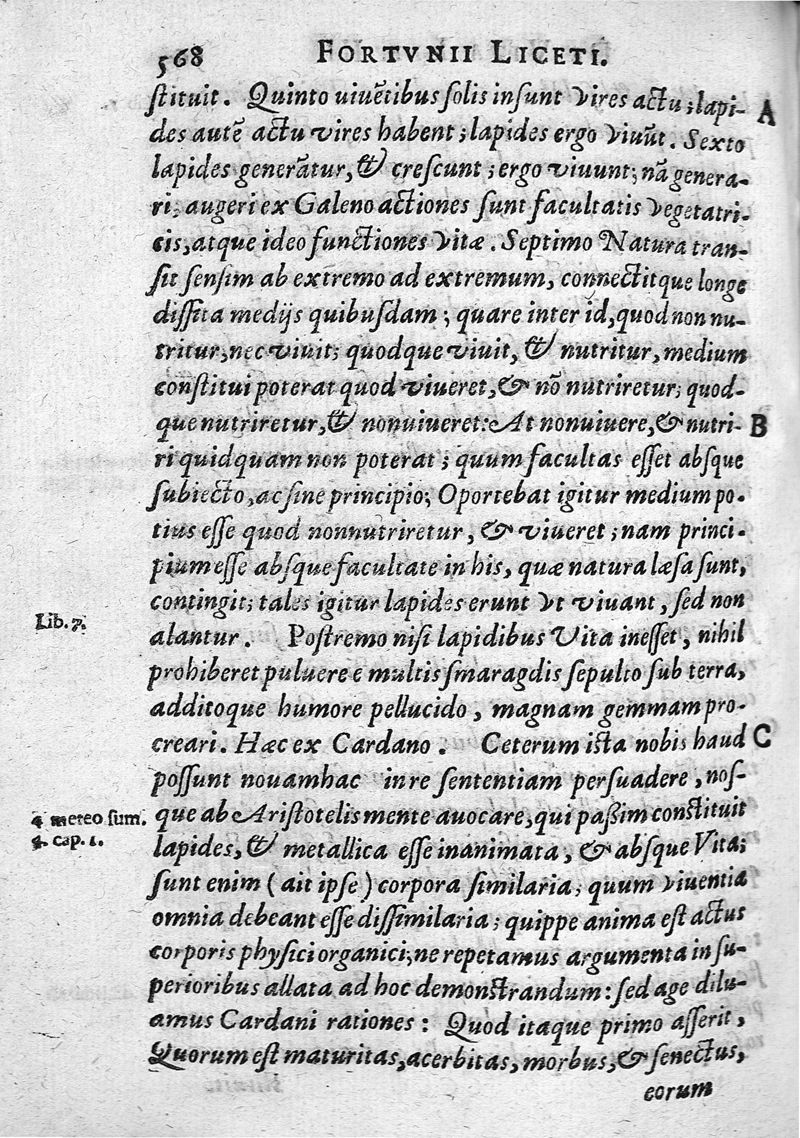 568 FORTVNII LICETI.
ſtituit. Quinto uiuẽtibus ſolis inſunt vires actu; lapi- A
des autẽ actu vires habent; lapides ergo viuũt. Sexto
lapides generãtur, & creſcunt; ergo viuunt; nã genera-
ri, augeri ex Galeno actiones ſunt facultatis vegetatri-
cis, atque ideo functiones vitæ. Septimo Natura tran-
ſit ſenſim ab extremo ad extremum, connectitque longe
diſſita medijs quibuſdam; quare inter id, quod non nu-
tritur, nec viuit; quodque viuit, & nutritur, medium
conſtitui poterat quod viueret, & nõ nutriretur; quod-
que nutriretur, & nonuiueret: At nonuiuere, & nutri- B
ri quidquam non poterat; quum facultas eſſet abſque
ſubiecto, ac ſine principio; Oportebat igitur medium po-
tius eſſe quod nonnutriretur, & viueret; nam princi-
pium eſſe abſque facultate in his, quæ natura læſa ſunt,
contingit; tales igitur lapides erunt vt viuant, ſed non
Lib. 7.
alantur. Poſtremo niſi lapidibus Vita ineſſet, nihil
prohiberet puluere e multis ſmaragdis ſepulto ſub terra,
additoque humore pellucido, magnam gemmam pro-
creari. Hæc ex Cardano. Ceterum iſta nobis haud C
poſſunt nouam hac in re ſententiam perſuadere, noſ-
4 meteo ſum.
que ab Ariſtotelis mente auocare, qui paßim conſtituit
4. cap. 1.
lapides, & metallica eſſe inanimata, & abſque Vita;
ſunt enim (ait ipſe) corpora ſimilaria; quum viuentia
omnia debeant eſſe diſſimilaria; quippe anima eſt actus
corporis phyſici organici; ne repetamus argumenta in ſu-
perioribus allata ad hoc demonſtrandum: ſed age dilu-
amus Cardani rationes: Quod itaque primo aſſerit,
Quorum eſt maturitas, acerbitas, morbus, & ſenectus,
eorum